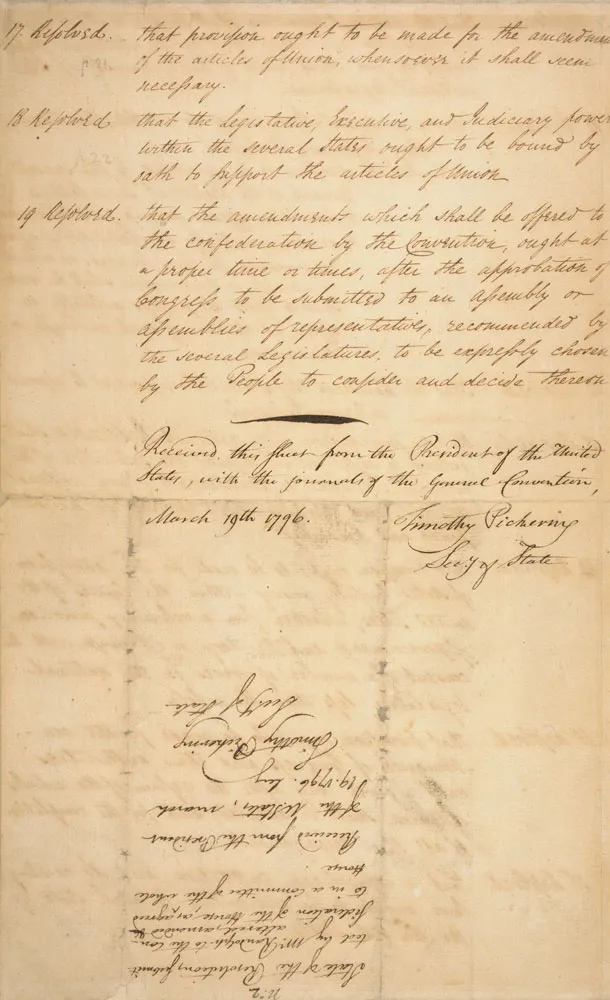 17 Resolved. that provision ought to be made for the amendmen
of the articles of Union, whensoever it shall seem
necessary.
18 Resolved that the Legislative, Executive, and Judiciary power
within the several States ought to be bound by
oath to support the articles of Union
19 Resolved. that the amendments which shall be offered to
the confederation by the Convention, ought at
a proper time or times, after the approbation of
Congress to be submitted to an assembly or
assemblies of representatives, recommended by
the several Legislatures, to be expressly chosen
by the People to consider and decide thereon
Received this sheet from the President of the United
States, with the journals of the General Convention,
March 19th 1796. Timothy Pickering
Secy of State
No. 2
State of the Resolutions submit
ted by Mr. Randolph to the con-
sideration of the House, as altered, amended &
agreed
to in a Committee of the whole
House.
Received from the President
of the U States, march
19. 1796. by
Timothy Pickering
Secy of State